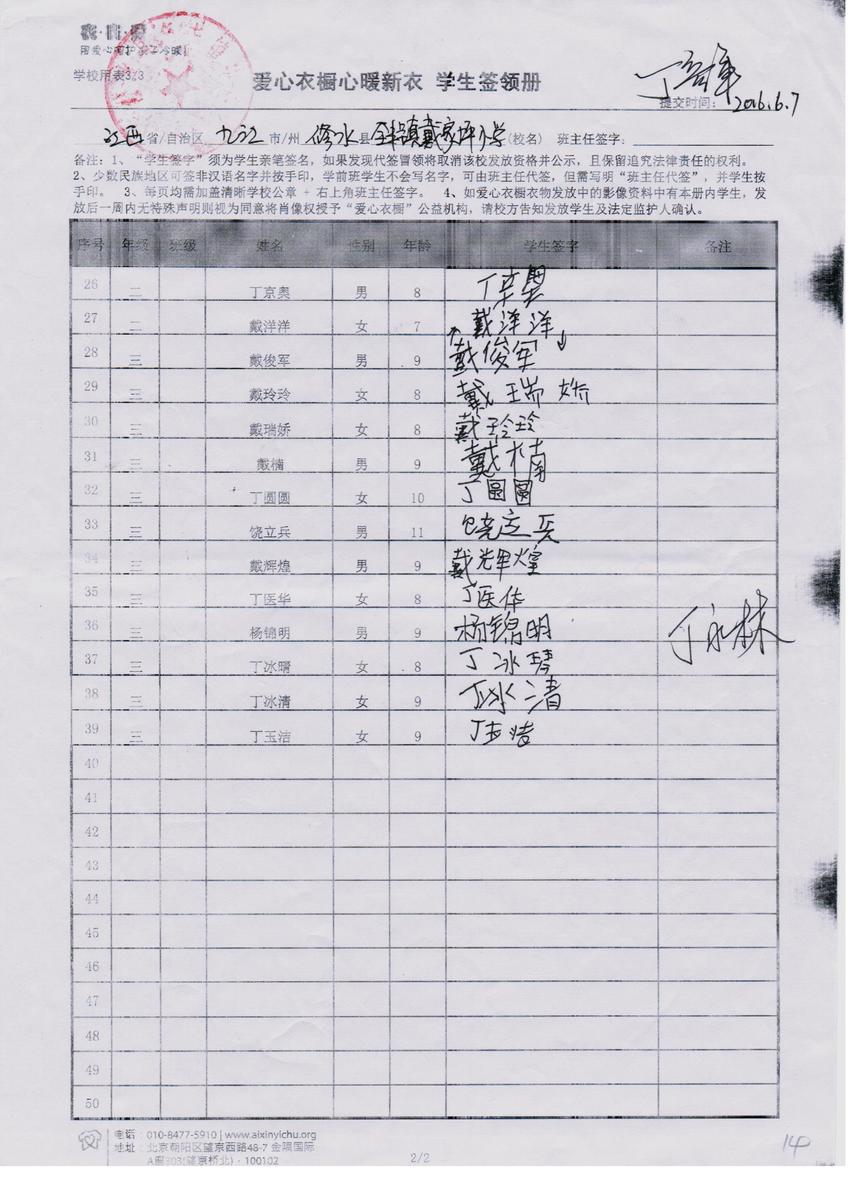 衣·育·爱
学校用表3/3
爱心衣橱心暖新衣 学生签领册
提交时间: 2016.6.7
江西 省/自治区 九江 市/州 修水 县 全丰镇戴家坪小学 (校名) 班主任签字:
备注:1、“学生签字”须为学生亲笔签名,如果发现代签冒领将取消该校发放资格并公示,且保留追究法律责任的权利。
2、少数民族地区可签非汉语名字并按手印,学前班学生不会写名字,可由班主任代签,但需写明“班主任代签”,并学生按
手印。 3、每页均需加盖清晰学校公章 + 右上角班主任签字。 4、如爱心衣橱衣物发放中的影像资料中有本册内学生,发
放后一周内无特殊声明则视为同意将肖像权授予“爱心衣橱”公益机构,请校方告知发放学生及法定监护人确认。
序号 年级 班级 姓名 性别 年龄 学生签字 备注
26 二 丁京奥 男 8 丁京奥
27 二 戴洋洋 女 7 戴洋洋
28 三 戴俊军 男 9 戴俊军
29 三 戴玲玲 女 8 戴瑞娇
30 三 戴瑞娇 女 8 戴玲玲
31 三 戴楠 男 9 戴楠
32 三 丁圆圆 女 10 丁圆圆
33 三 饶立兵 男 11 饶立兵
34 三 戴辉煌 男 9 戴辉煌
35 三 丁医华 女 8 丁医华
36 三 杨锦明 男 9 杨锦明 丁永林
37 三 丁冰晴 女 8 丁冰琴
38 三 丁冰清 女 9 丁冰清
39 三 丁玉洁 女 9 丁玉洁
40
41
42
43
44
45
46
47
48
49
50
电话:010-8477-5910 | www.aixinyichu.org
地址:北京朝阳区望京西路48-7 金隅国际
A座303(望京桥北)·100102
2/2
14